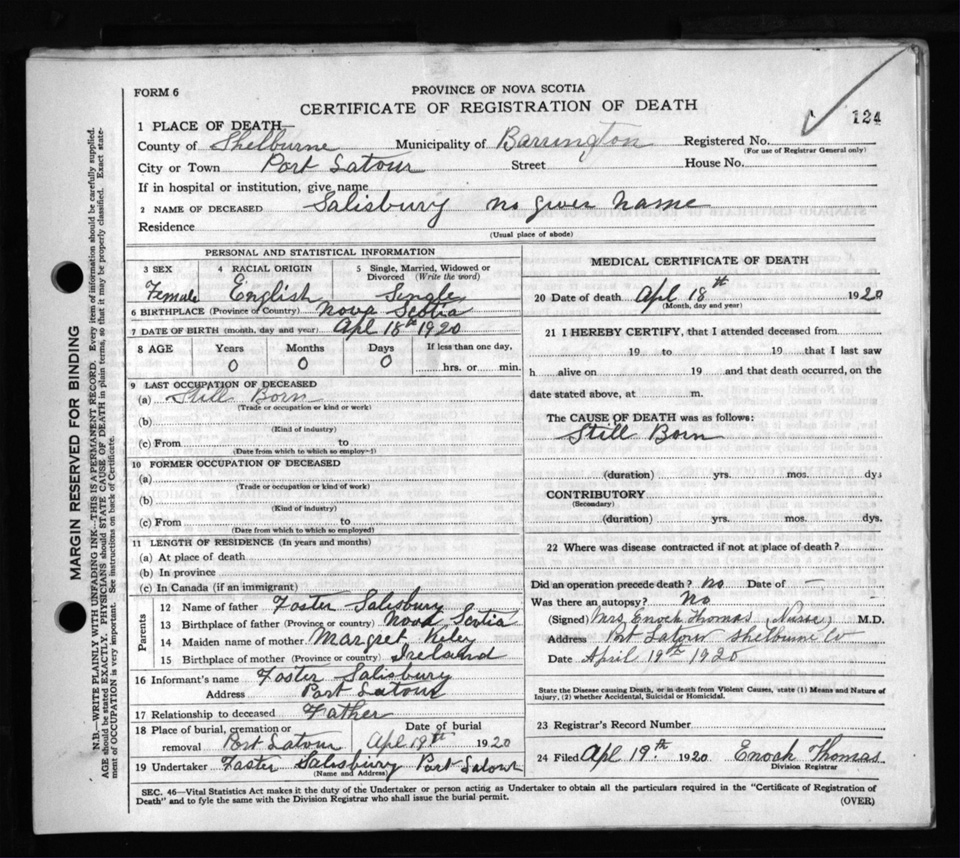 FORM 6
PROVINCE OF NOVA SCOTIA
CERTIFICATE OF REGISTRATION OF DEATH
124
1 PLACE OF DEATH—
County of Shelburne Municipality of Barrington Registered No.
(For use of Registrar General only)
City or Town Port Latour Street House No.
If in hospital or institution, give name
2 NAME OF DECEASED Salisbury no given name
Residence
(Usual place of abode)
PERSONAL AND STATISTICAL INFORMATION
3 SEX 4 RACIAL ORIGIN 5 Single, Married, Widowed or
Divorced (Write the word)
Female English Single
6 BIRTHPLACE (Province or Country) Nova Scotia
7 DATE OF BIRTH (month, day and year) Apl 18th 1920
8 AGE Years Months Days If less than one day,
0 0 0 hrs. or min.
9 LAST OCCUPATION OF DECEASED
(a) Still Born
(Trade or occupation or kind or work)
(b)
(Kind of industry)
(c) From to
(Date from which to which so employed)
10 FORMER OCCUPATION OF DECEASED
(a)
(Trade or occupation or kind of work)
(b)
(Kind of industry)
(c) From to
(Date from which to which so employed)
11 LENGTH OF RESIDENCE (In years and months)
(a) At place of death
(b) In province
(c) In Canada (if an immigrant)
Parents
12 Name of father Foster Salisbury
13 Birthplace of father (Province or country) Nova Scotia
14 Maiden name of mother Margret Kiley
15 Birthplace of mother (Province or country) Ireland
16 Informant's name Foster Salisbury
Address Port Latour
17 Relationship to deceased Father
18 Place of burial, cremation or Date of burial
removal Port Latour Apl 19th 1920
19 Undertaker Foster Salisbury Port Latour
(Name and Address)
MEDICAL CERTIFICATE OF DEATH
20 Date of death Apl 18th 1920
(Month, day and year)
21 I HEREBY CERTIFY, that I attended deceased from
19 to 19 that I last saw
h alive on 19 and that death occurred, on the
date stated above, at m.
The CAUSE OF DEATH was as follows:
Still Born
(duration) yrs. mos. dys
CONTRIBUTORY
(Secondary)
(duration) yrs. mos. dys.
22 Where was disease contracted if not at place of death?
Did an operation precede death? no Date of —
Was there an autopsy? No
(Signed) Mrs Enoch Thomas (Nurse) M.D.
Address Port Latour Shelburne Co
Date April 19th 1920
State the Disease causing Death, or in death from Violent Causes, state (1) Means and Nature of
Injury, (2) whether Accidental, Suicidal or Homicidal.
23 Registrar's Record Number
24 Filed Apl 19th 1920 Enoch Thomas
Division Registrar
SEC. 46—Vital Statistics Act makes it the duty of the Undertaker or person acting as Undertaker to obtain all the particulars required in the "Certificate of Registration of
Death" and to fyle the same with the Division Registrar who shall issue the burial permit.
(OVER)
MARGIN RESERVED FOR BINDING
N.B.—WRITE PLAINLY WITH UNFADING INK—THIS IS A PERMANENT RECORD. Every item of information should be carefully supplied.
AGE should be stated EXACTLY. PHYSICIANS should STATE CAUSE OF DEATH in plain terms, so that it may be properly classified. Exact state-
ment of OCCUPATION is very important. See instructions on back of Certificate.